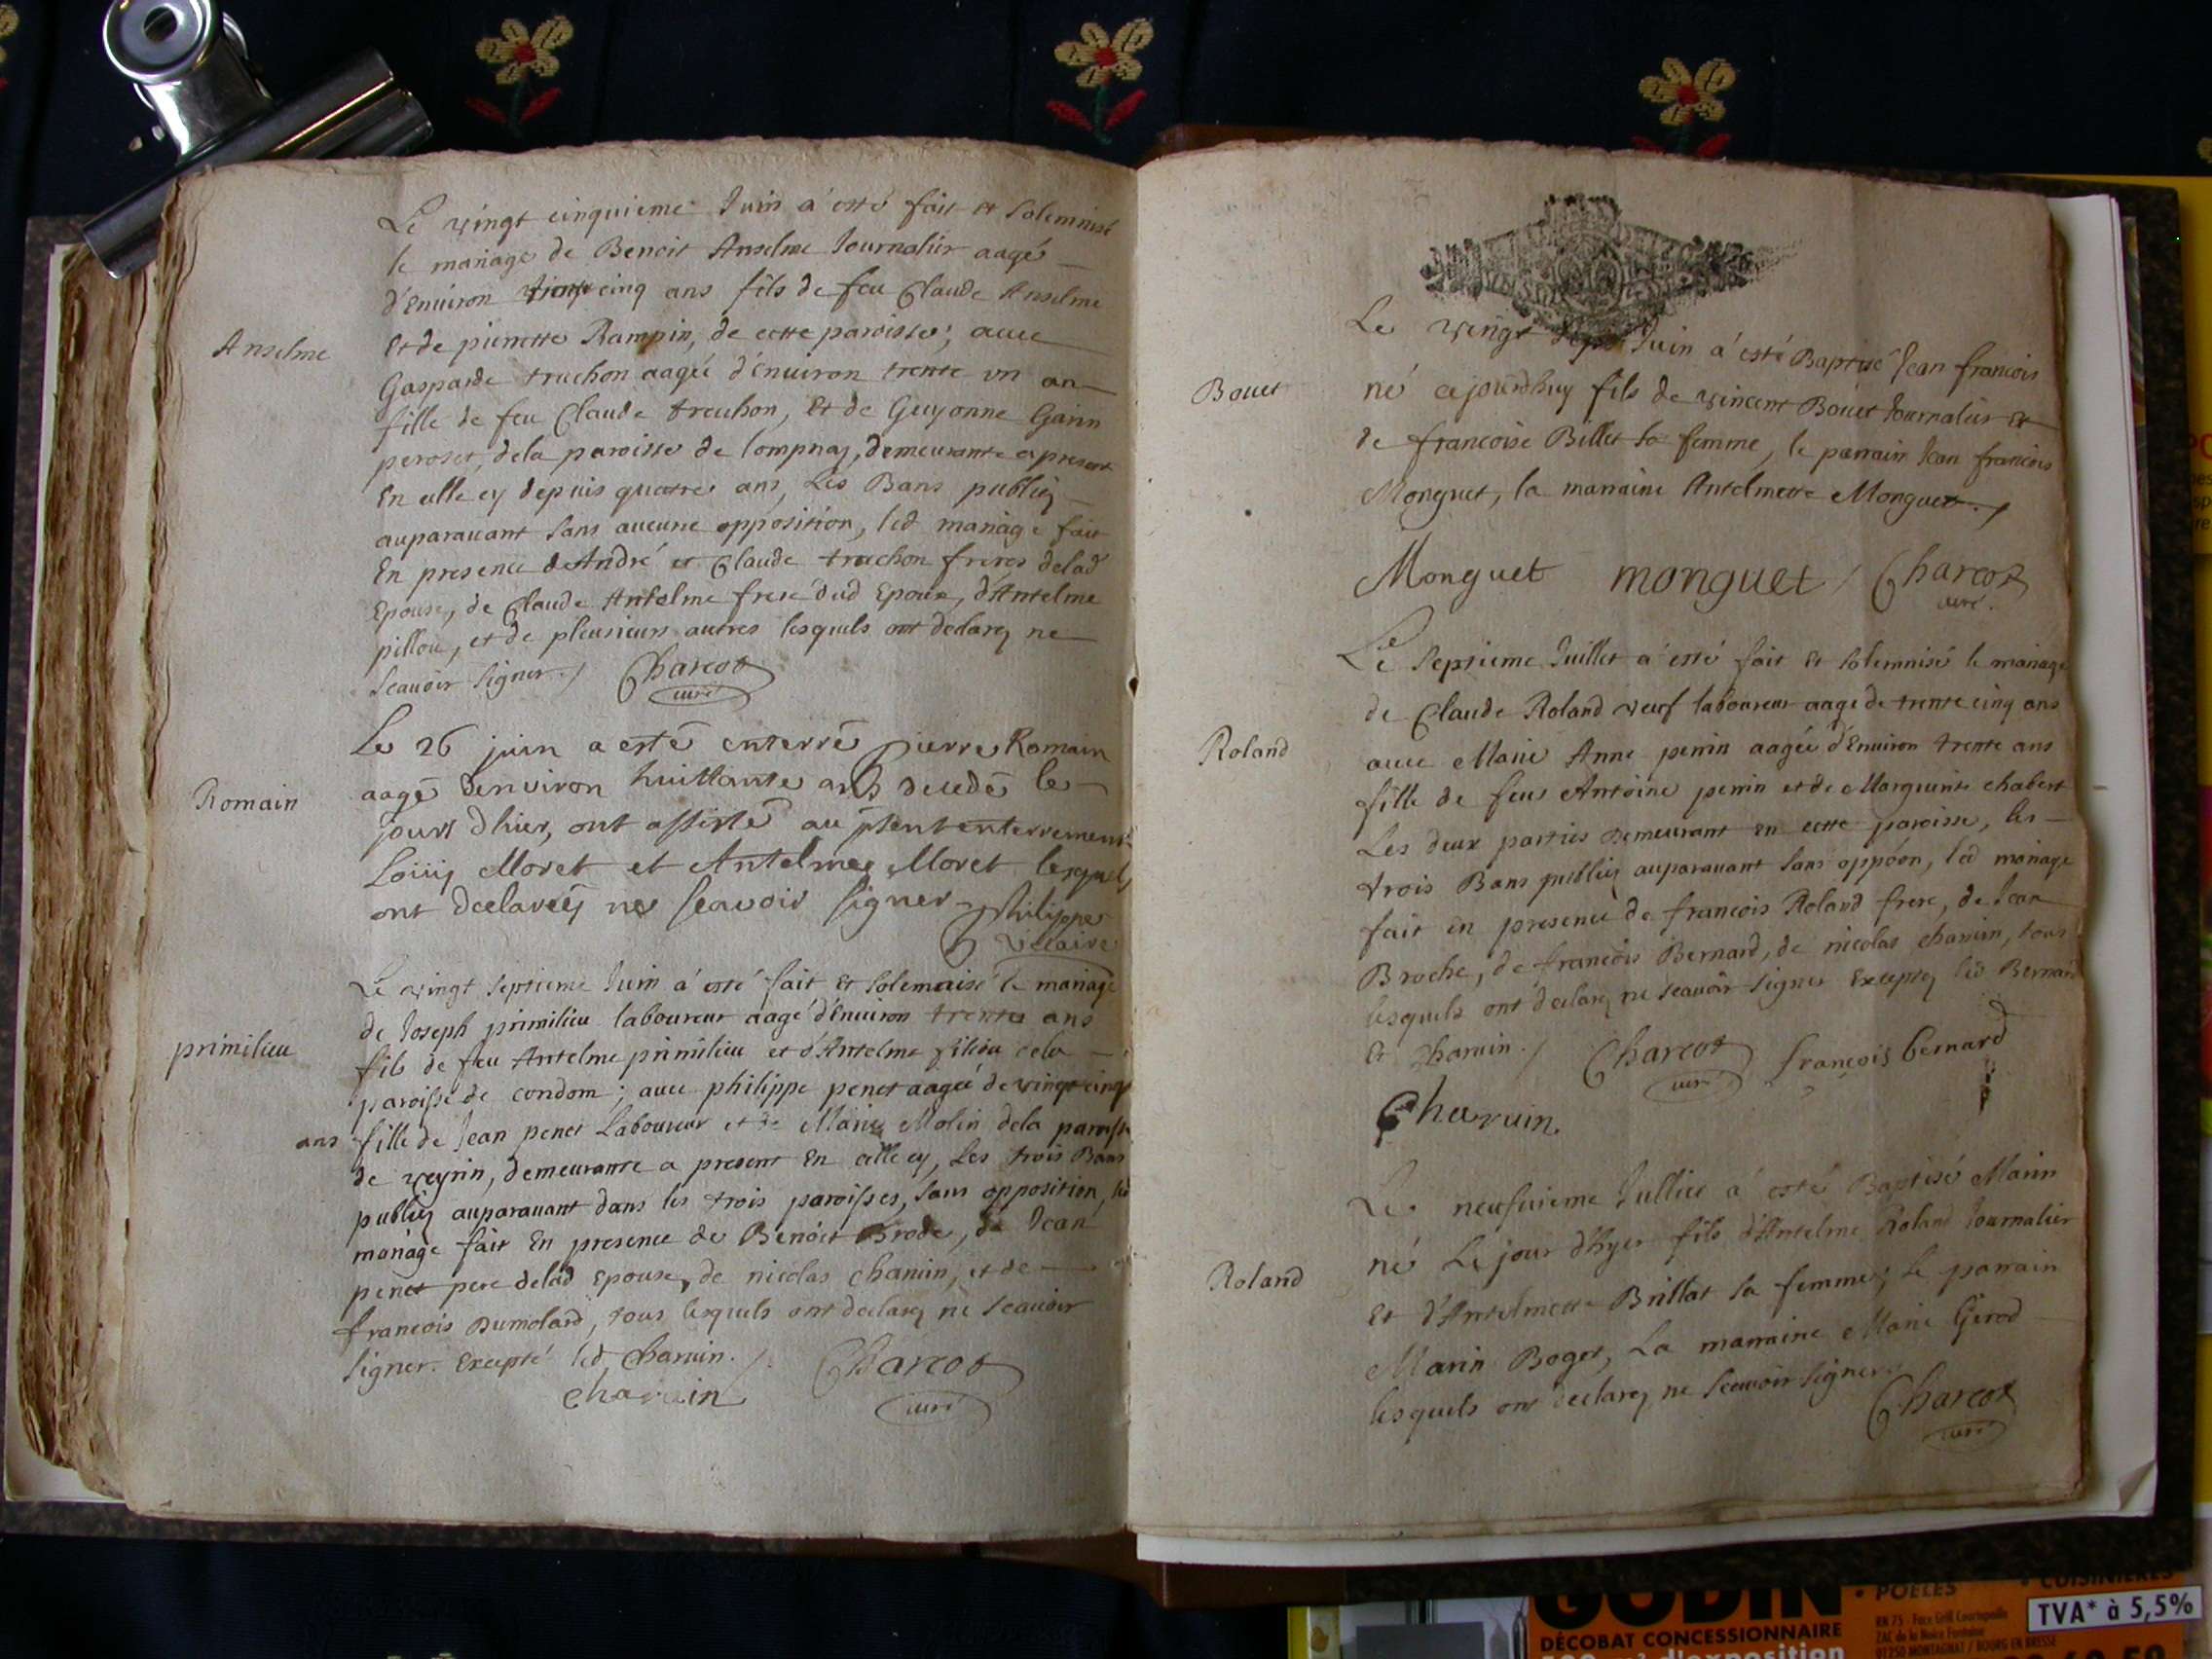 Le vingt cinquieme Juin a esté fait et solemnisé
le mariage de Benoit Anselme Journalier aagé
d'Enuiron cinq ans fils de feu Claude Anselme
Anselme
Et de pierrette Rampin, de cette paroisse, auec
Gasparde truchon aagée d'enuiron trente vn an
fille de feu Claude treuhon, Et de Guyonne Garin
peroset, dela paroisse de lompnaz, demeurante a present
En celle cy depuis quattre ans, Les Bans publiez
auparauant sans aucune opposition, led mariage fait
En presence d'André et Claude truchon freres delad
Epouse, de Claude Antelme frere dud Epoux, d'Antelme
pillou, et de pleusieurs autres lesquels ont declarez ne
scauoir signer./ Charcot
curé
Le 26 juin a esté enterré pierre Romain
Romain
aagé denviron huittante ans decedé le
jourt dhier, ont assisté au pñt enterrement
Loüis Moret et Antelme Moret lesquels
ont declareéz ne sçavoir signer Philippe
Vicaire
Le vingt septieme Juin a esté fait et solemnisé le mariage
de Joseph primilieu laboureur aagé d'Enuiron trente ans
primilieu
fils de feu Antelme primilieu et d'Antelme filieu dela
paroisse de condom; auec philippe penet aagée de vingt cinq
ans fille de Jean penet Laboureur et de Marie Molin dela paroisse
de veyrin, demeurante a present En celle cy, Les trois Bans
publiez auparauant dans les trois paroisses, sans opposition, led
mariage fait En presence de Benoit Brode, de Jean
penet pere delad Epouse, de nicolas charuin, et de
francois Dumolard, tous lesquels ont declarez ne scauoir
signer. Excepté led charuin./.
charuin Charcot
curé
Le vingt sept Juin a esté Baptisé Jean francois
Bouet
né cejourdhuy fils de vincent Bouet Journalier et
de francoise Billet sa femme, le parrain Jean francois
Monguet, la marraine Antelmette Monguet./
Monguet monguet / Charcot
curé.
Le septieme Juillet a esté fait et solemnisé le mariage
de Claude Roland veuf laboureur aagé de trente cinq ans
Roland
auec Marie Anne perrin aagée d'Enuiron trente ans
fille de feu Antoine perrin et de Marguerite chabert
Les deux parties Demeurant en cette paroisse, les
trois Bans publiez auparauant sans oppõon, led mariage
fait en presence de francois Roland frere, de Jean
Broche, de francois Bernard, de nicolas charuin, tous
lesquels ont declarez ne scauoir signer Exceptez led Bernard
Et Charuin./ Charcot françois bernard
curé
Charuin.
Le neufuieme Jullier a esté Baptisé Marin
né Le jour d'hyer fils d'Antelme Roland Journalier
Roland
Et d'Antelmette Brillat sa femme; Le parrain
Marin Roget, La marraine Marie Girod
lesquels ont declarez ne scauoir signer.
Charcot
curé
GODIN
• POÊLES
• CUISINIÈRES
DÉCOBAT CONCESSIONNAIRE
TVA* à 5,5%
d'exposition